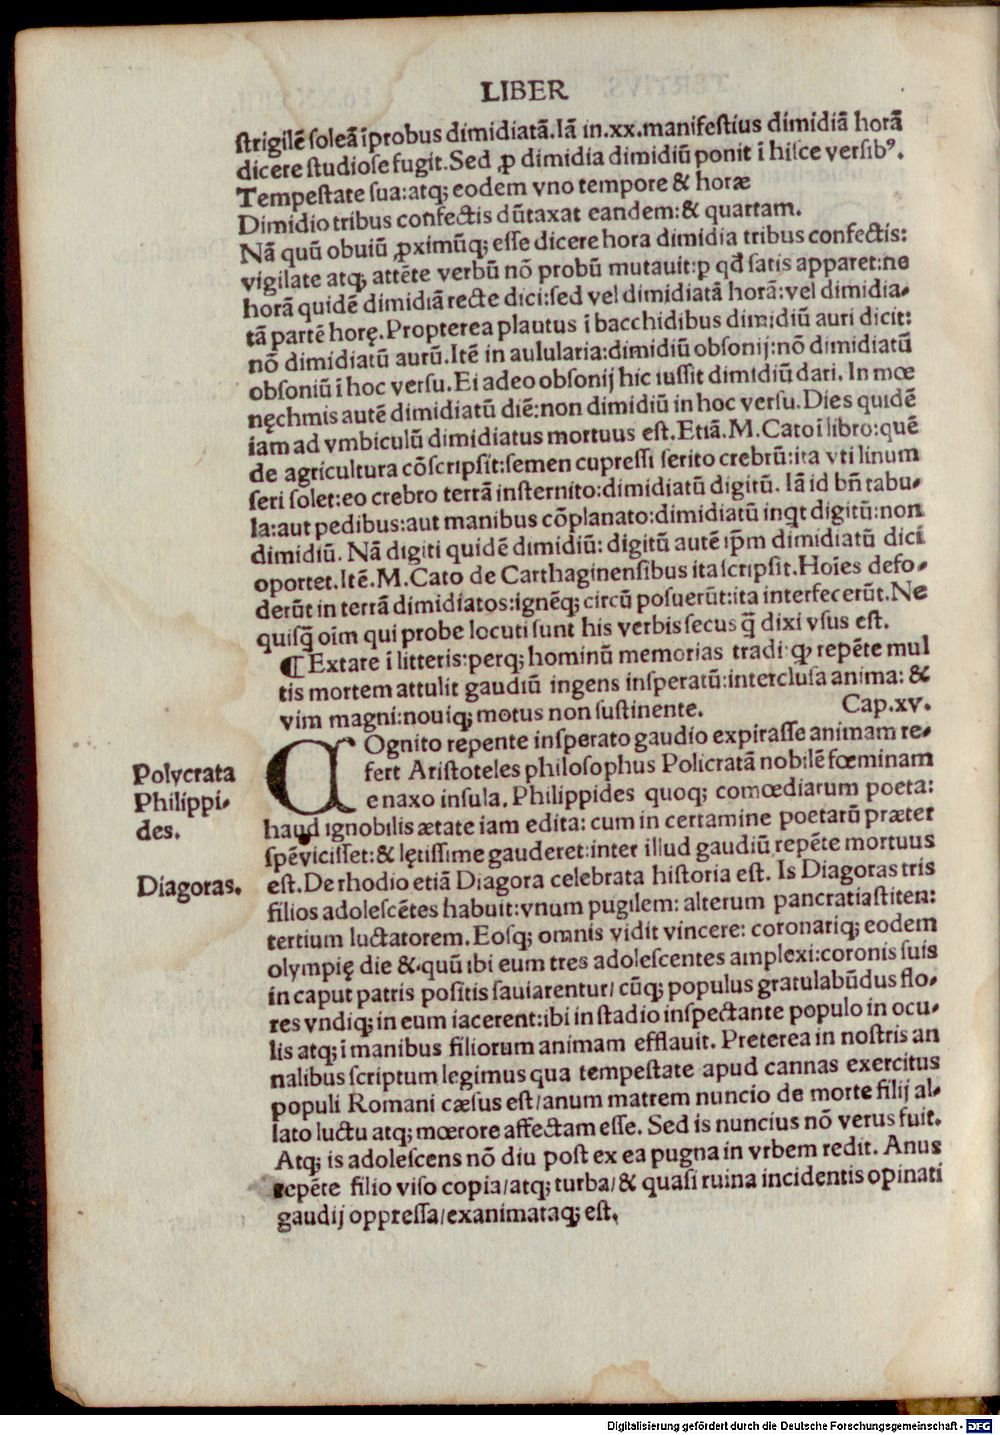 LIBER
ſtrigilē ſoleā īprobus dimidiatā. Iā in.xx.manifeſtius dimidiā horā
dicere ſtudioſe fugit. Sed ꝓ dimidia dimidiū ponit ī hiſce verſibꝰ.
Tempeſtate ſua:atqꝫ eodem vno tempore & horæ
Dimidio tribus confectis dūtaxat eandem:& quartam.
Nā quū obuiū ꝓximūqꝫ eſſe dicere hora dimidia tribus confectis:
vigilate atqꝫ attēte verbū nō probū mutauit:p qđ ſatis apparet:ne
horā quidē dimidiā recte dici:ſed vel dimidiatā horā:vel dimidia-
tā partē horę. Propterea plautus ī bacchidibus dimidiū auri dicit:
nō dimidiatū aurū. Itē in aulularia:dimidiū obſonij:nō dimidiatū
obſoniū ī hoc verſu. Ei adeo obſonij hic iuſſit dimidiū dari. In mœ
nęchmis autē dimidiatū diē:non dimidiū in hoc verſu. Dies quidē
iam ad vmbiculū dimidiatus mortuus eſt. Etiā. M. Cato ī libro:quē
de agricultura cōſcripſit:ſemen cupreſſi ſerito crebrū:ita vti linum
ſeri ſolet:eo crebro terrā inſternito:dimidiatū digitū. Iā id bn̄ tabu-
la:aut pedibus:aut manibus cōplanato:dimidiatū inqt digitū:non
dimidiū. Nā digiti quidē dimidiū: digitū autē ip̄m dimidiatū dici
oportet. Itē. M. Cato de Carthaginenſibus ita ſcripſit. Hoīes defo-
derūt in terrā dimidiatos:ignēqꝫ circū poſuerūt:ita interfecerūt. Ne
quiſq̄ oīm qui probe locuti ſunt his verbis ſecus q̄ dixi vſus eſt.
¶ Extare ī litteris:perqꝫ hominū memorias tradi: ꝙ repēte mul
tis mortem attulit gaudiū ingens inſperatū:intercluſa anima: &
vim magni:nouiqꝫ motus non ſuſtinente. Cap.xv.
COgnito repente inſperato gaudio expiraſſe animam re-
fert Ariſtoteles philoſophus Policratā nobilē fœminam
e naxo inſula. Philippides quoqꝫ comœdiarum poeta:
haud ignobilis ætate iam edita: cum in certamine poetarū præter
ſpē viciſſet:& lętiſſime gauderet:inter illud gaudiū repēte mortuus
eſt. De rhodio etiā Diagora celebrata hiſtoria eſt. Is Diagoras tris
filios adoleſcētes habuit:vnum pugilem: alterum pancratiaſtiten:
tertium luctatorem. Eoſqꝫ omnis vidit vincere: coronariqꝫ eodem
olympię die &.quū ibi eum tres adoleſcentes amplexi:coronis ſuis
in caput patris poſitis ſauiarentur/ cūqꝫ populus gratulabūdus flo-
res vndiqꝫ in eum iacerent:ibi in ſtadio inſpectante populo in ocu-
lis atqꝫ ī manibus filiorum animam efflauit. Preterea in noſtris an
nalibus ſcriptum legimus qua tempeſtate apud cannas exercitus
populi Romani cæſus eſt/anum matrem nuncio de morte filij al-
lato luctu atqꝫ mœrore affectam eſſe. Sed is nuncius nō verus fuit.
Atqꝫ is adoleſcens nō diu poſt ex ea pugna in vrbem redit. Anus
repēte filio viſo copia/atqꝫ turba/& quaſi ruina incidentis opinati
gaudij oppreſſa/exanimataqꝫ eſt.
Polycrata
Philippi-
des.
Diagoras.
Digitalisierung gefördert durch die Deutsche Forschungsgemeinschaft - DFG